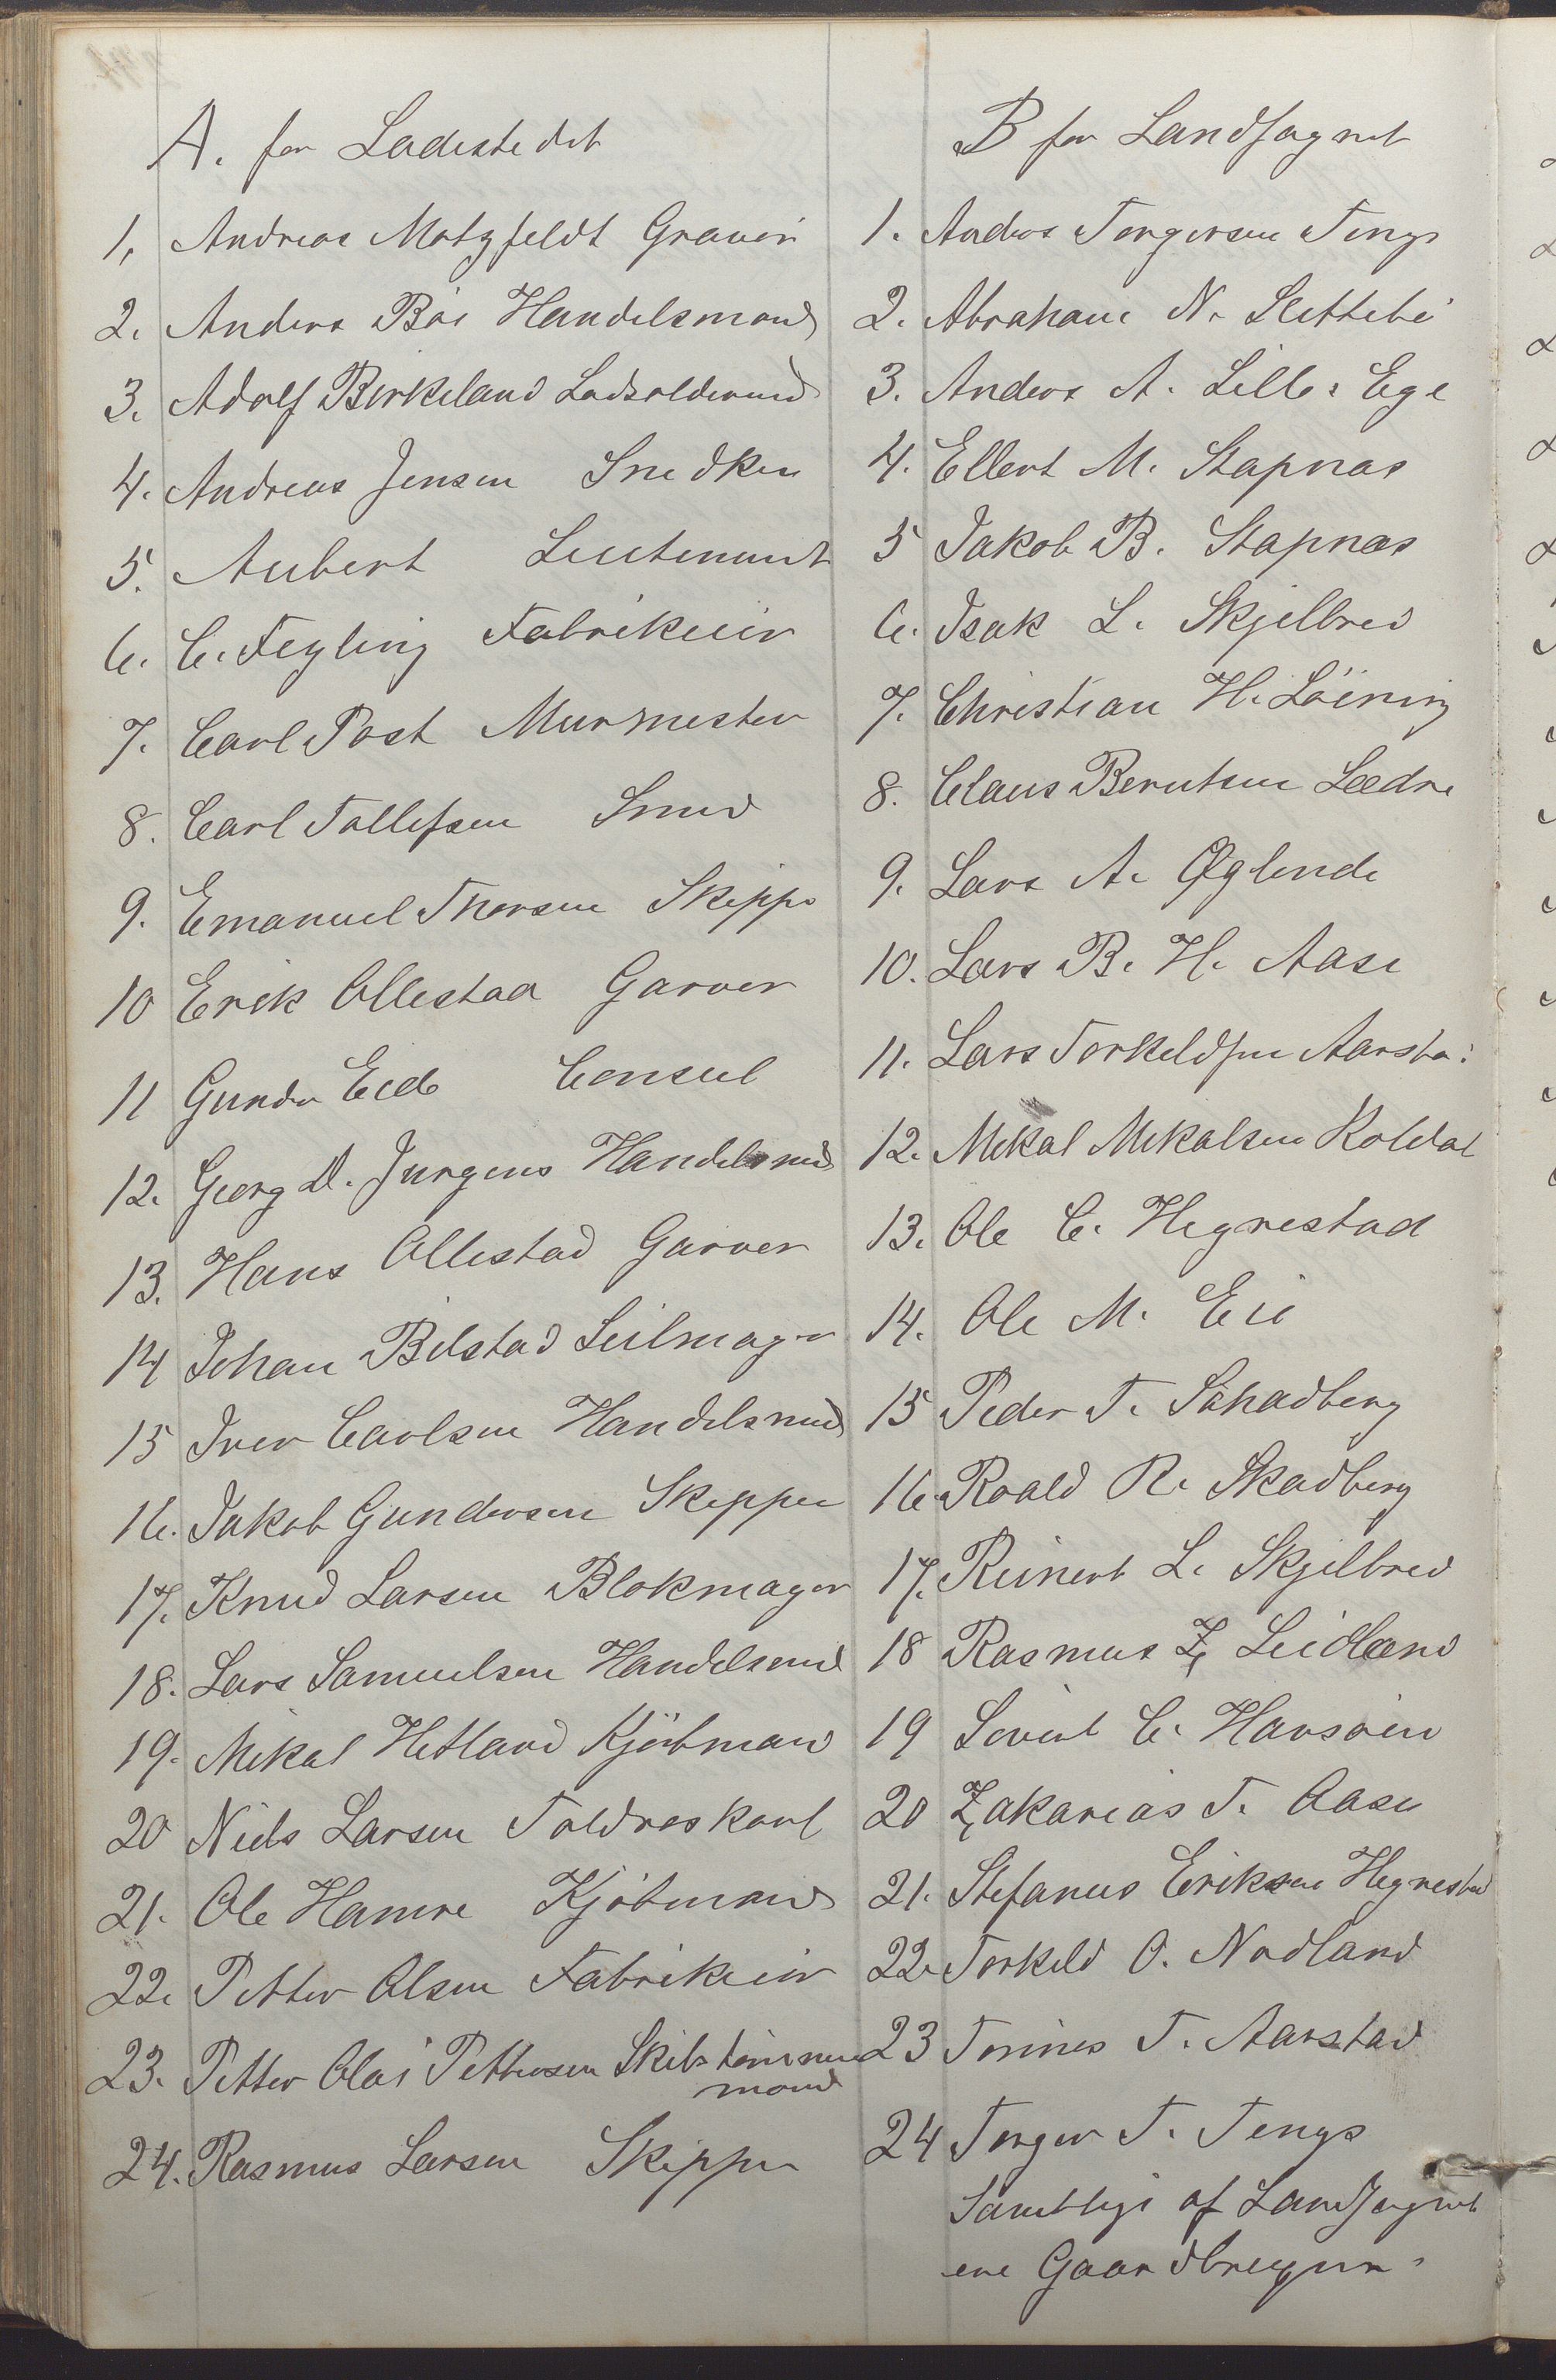 A. for Ladestedet
1, Andreas Motzfeldt Gravør
2. Anders Bøe Handelsmand
3. Adolf Birkeland Lodsoldermd
4. Andreas Jensen Snedker
5. Aubert Lieutenant
6. C. Feyling Fabrikeier
7. Carl Post Murmester
8. Carl Tollefsen Smed
9. Emanuel Thorsen Skipper
10 Erik Ollestad Garver
11 Gunder Eide Consul
12. Georg D. Jurgens Handelsmd
13. Hans Ollestad Garver
14 Johan Bilstad Seilmager
15 Iver Carlsen Handelsmd
16. Jakob Gundersen Skipper
17. Knud Larsen Blokmager
18. Lars Samuelsen Handelsmd
19. Mikal Hetland Kjøbmand
20 Niels Larsen Toldroskarl
21. Ole Hamre Kjøbmand
22. Petter Olsen Fabrikeier
23. Petter Olai Pettersen Skibstømmer
mand
24. Rasmus Larsen Skipper
B for Landsognet
1. Anders Torgersen Tengs
2. Abraham N. Slettebø
3. Anders A. Lille Ege
4. Ellert M. Stapnæs
5 Jakob B. Stapnæs
6. Isak L. Skjelbred
7. Christian H. Løining
8. Claus Berntsen Lædre
9. Lars A. Øglende
10. Lars B. H. Aase
11. Lars Torkeldsen Aarstad
12. Mikal Mikalsen Koldal
13. Ole C. Hegrestad
14. Ole M. Eie
15 Peder T. Schadberg
16. Roald R. Skadberg
17. Reinert L. Skjelbred
18 Rasmus Z. Leidland
19 Sivert C. Havsøen
20 Zakarias T. Aase
21. Stefanus Eriksen Hegrestad
22. Torkeld O. Nodland
23 Tønnes T. Aarstad
24 Torger T. Tengs
Samtlige af Landsognet
ere Gaardbrugere.